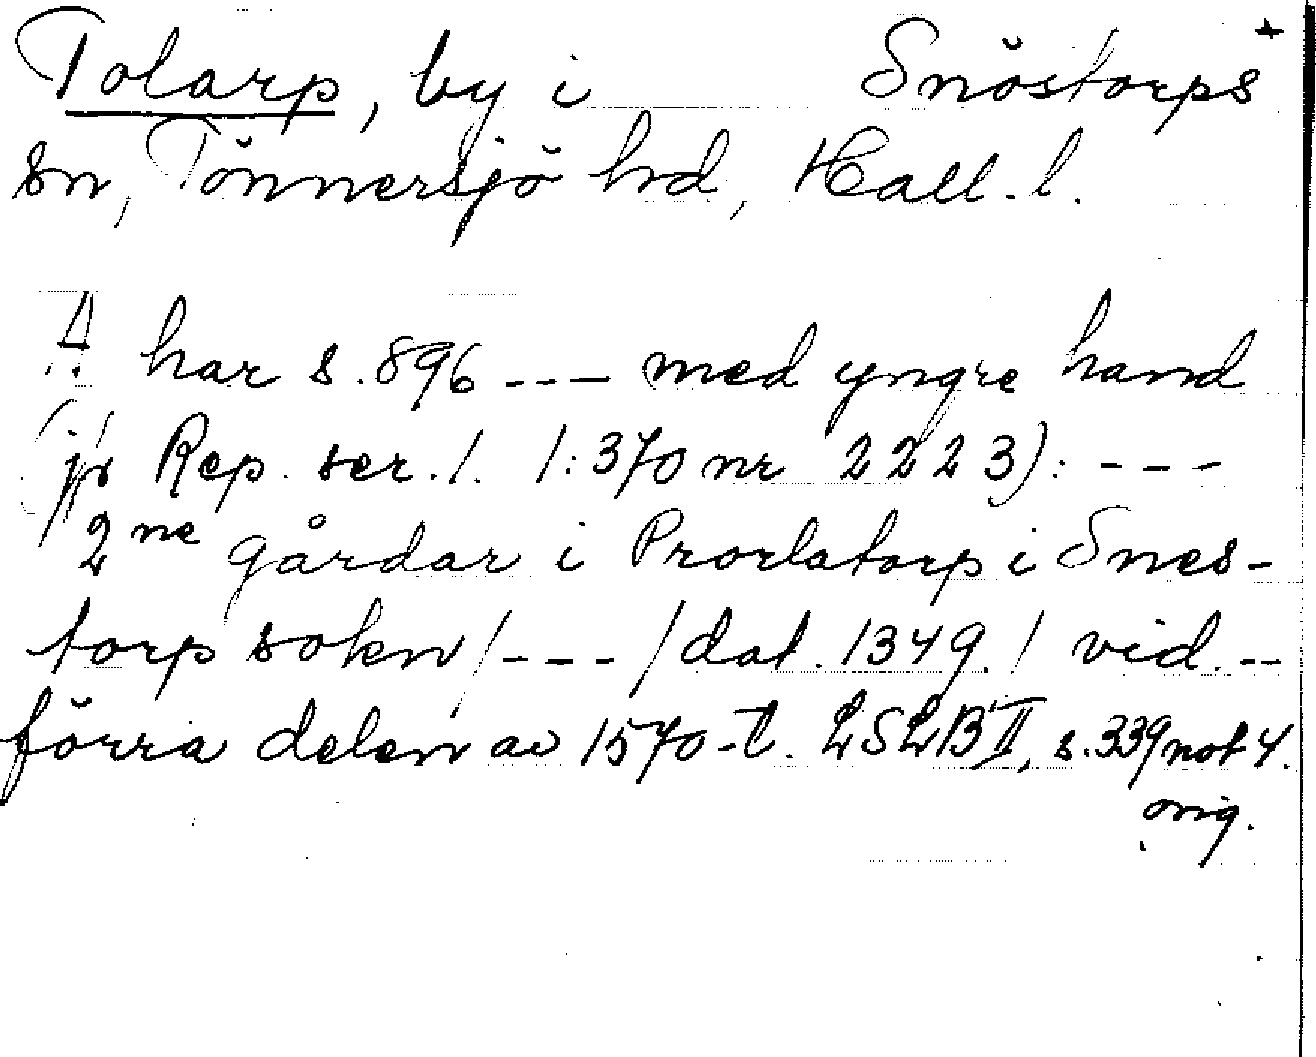 Tolarp, by i Snöstorps +
sn, Tönnersjö hd, Hall. l.
A har s. 896 --- med yngre hand
(jfr Rep. ser. 1. 1:370 nr 2223): ---
2ne gårdar i Prorlatorp i Snes-
torp sokn /---/ dat. 1349. / vid. --
förra delen av 1570-t. LSLB II, s. 339 not 4.
orig.